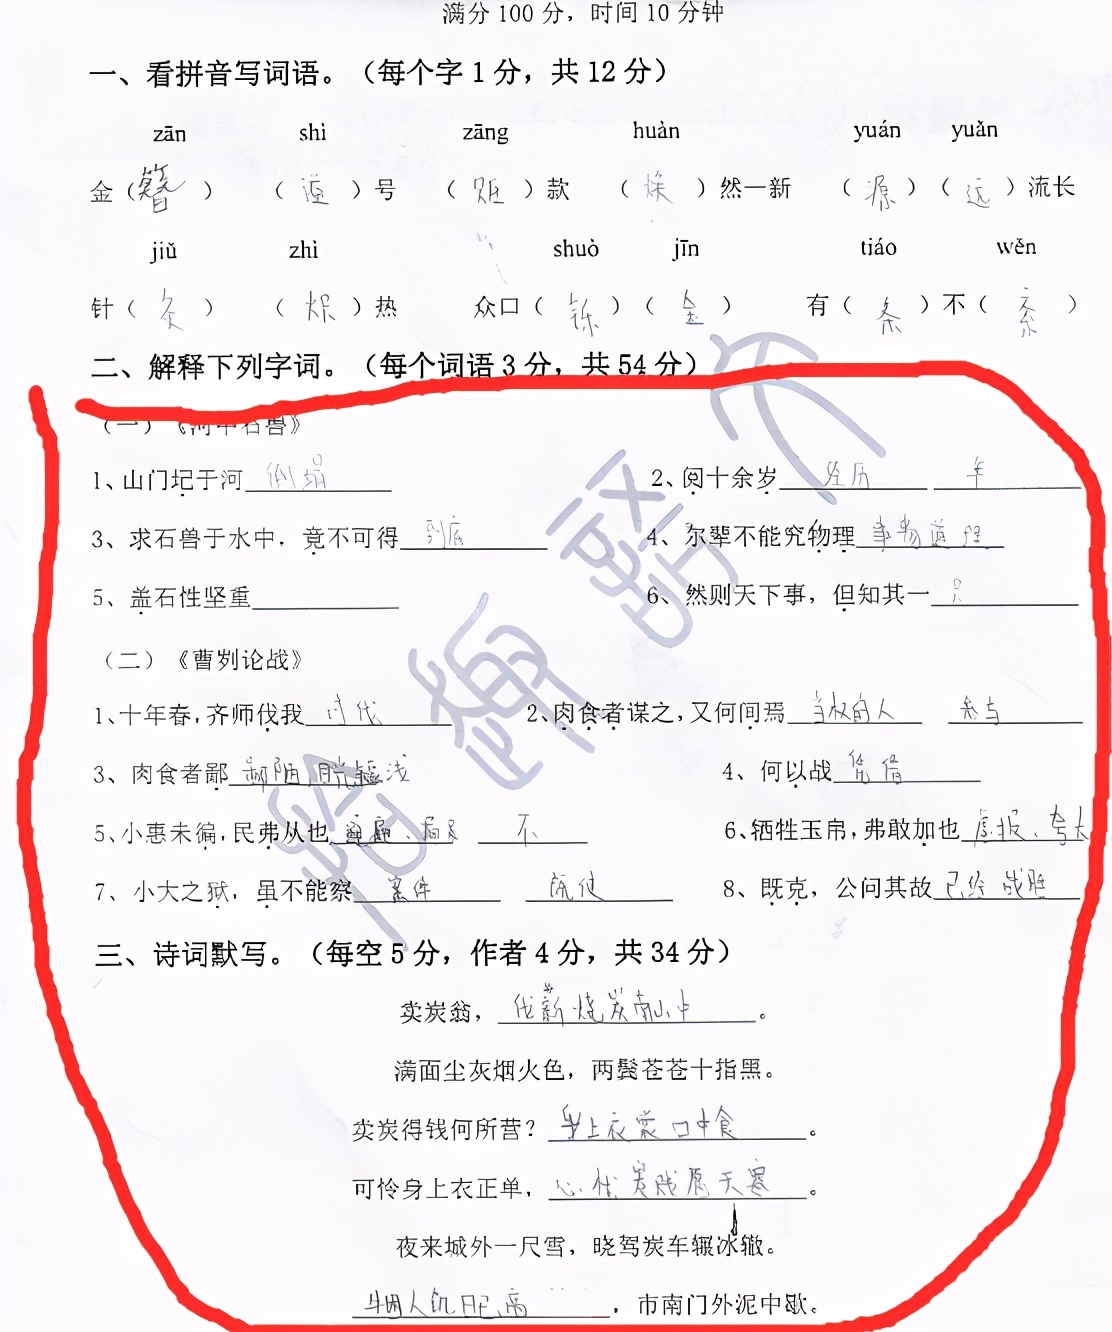 满分 100 分，时间 10 分钟
一、看拼音写词语。（每个字 1 分，共 12 分）
zān shì zāng huàn yuán yuǎn
金（簪）（谥）号（赃）款（焕）然一新（源）（远）流长
jiǔ zhì shuò jīn tiáo wěn
针（灸）（炽）热 众口（铄）（金）有（条）不（紊）
二、解释下列字词。（每个词语 3 分，共 54 分）
（一）《河中石兽》
1、山门圮于河 倒塌 2、阅十余岁 经历 年
3、求石兽于水中，竟不可得 到底 4、尔辈不能究物理 事物道理
5、盖石性坚重 6、然则天下事，但知其一 只
（二）《曹刿论战》
1、十年春，齐师伐我 讨伐 2、肉食者谋之，又何间焉 当权的人 参与
3、肉食者鄙 鄙陋，目光短浅 4、何以战 凭借
5、小惠未徧，民弗从也 遍、 不 6、牺牲玉帛，弗敢加也 虚报、夸大
7、小大之狱，虽不能察 案件 即使 8、既克，公问其故 已经 战胜
三、诗词默写。（每空 5 分，作者 4 分，共 34 分）
卖炭翁，伐薪烧炭南山中。
满面尘灰烟火色，两鬓苍苍十指黑。
卖炭得钱何所营？身上衣裳口中食。
可怜身上衣正单，心忧炭贱愿天寒。
夜来城外一尺雪，晓驾炭车辗冰辙。
牛困人饥日已高，市南门外泥中歇。